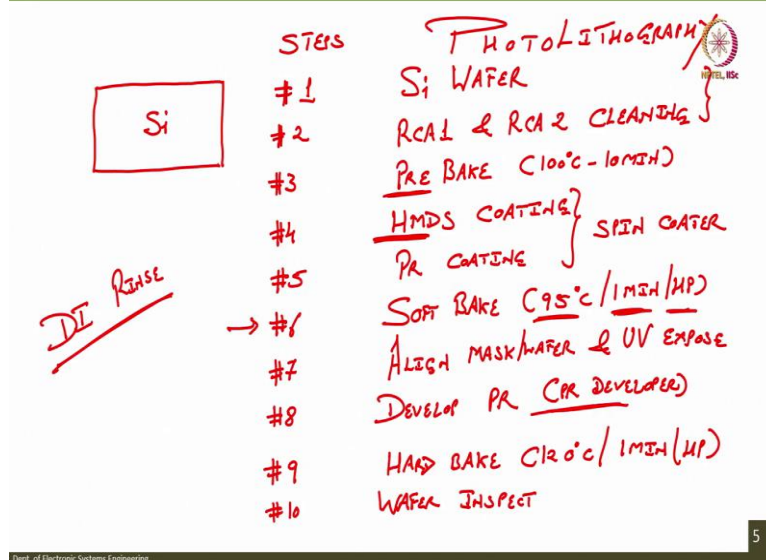 STEPS PHOTOLITHOGRAPHY
NPTEL, IISc
#1 Si WAFER
Si
#2 RCA1 & RCA2 CLEANING
#3 PRE BAKE (100°C - 10MIN)
#4 HMDS COATING
SPIN COATER
#5 PR COATING
DI RINSE
→ #6 SOFT BAKE (95°C / 1MIN / HP)
#7 ALIGN MASK/WAFER & UV EXPOSE
#8 DEVELOP PR (PR DEVELOPER)
#9 HARD BAKE (120°C / 1MIN (HP)
#10 WAFER INSPECT
5
Dept. of Electronic Systems Engineering